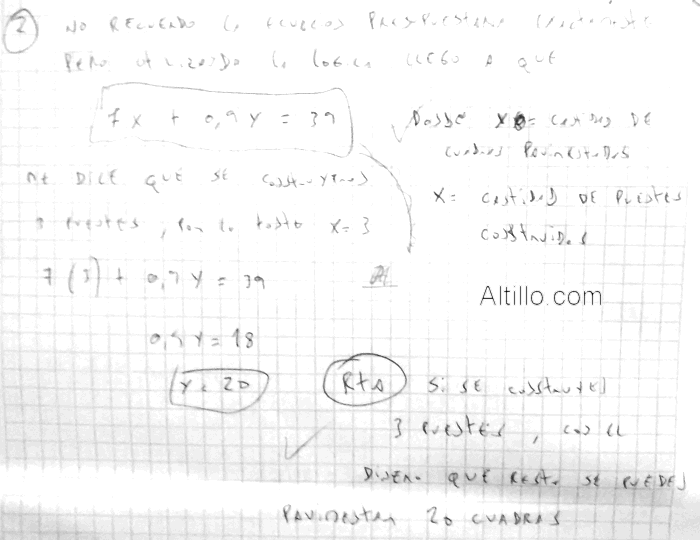 2 NO RECUERDO LA ECUACION PRESUPUESTARIA EXACTAMENTE
PERO UTILIZANDO LA LOGICA LLEGO A QUE
7X + 0,9Y = 39
DONDE X = CANTIDAD DE
CUADRAS PAVIMENTADAS
X = CANTIDAD DE PUENTES
CONSTRUIDOS
ME DICE QUE SE CONSTRUYERON
3 PUENTES, POR LO TANTO X = 3
7(3) + 0,9Y = 39
0,9Y = 18
Y = 20
Altillo.com
Rta SI SE CONSTRUYEN
3 PUENTES, CON EL
DINERO QUE RESTA SE PUEDEN
PAVIMENTAR 20 CUADRAS